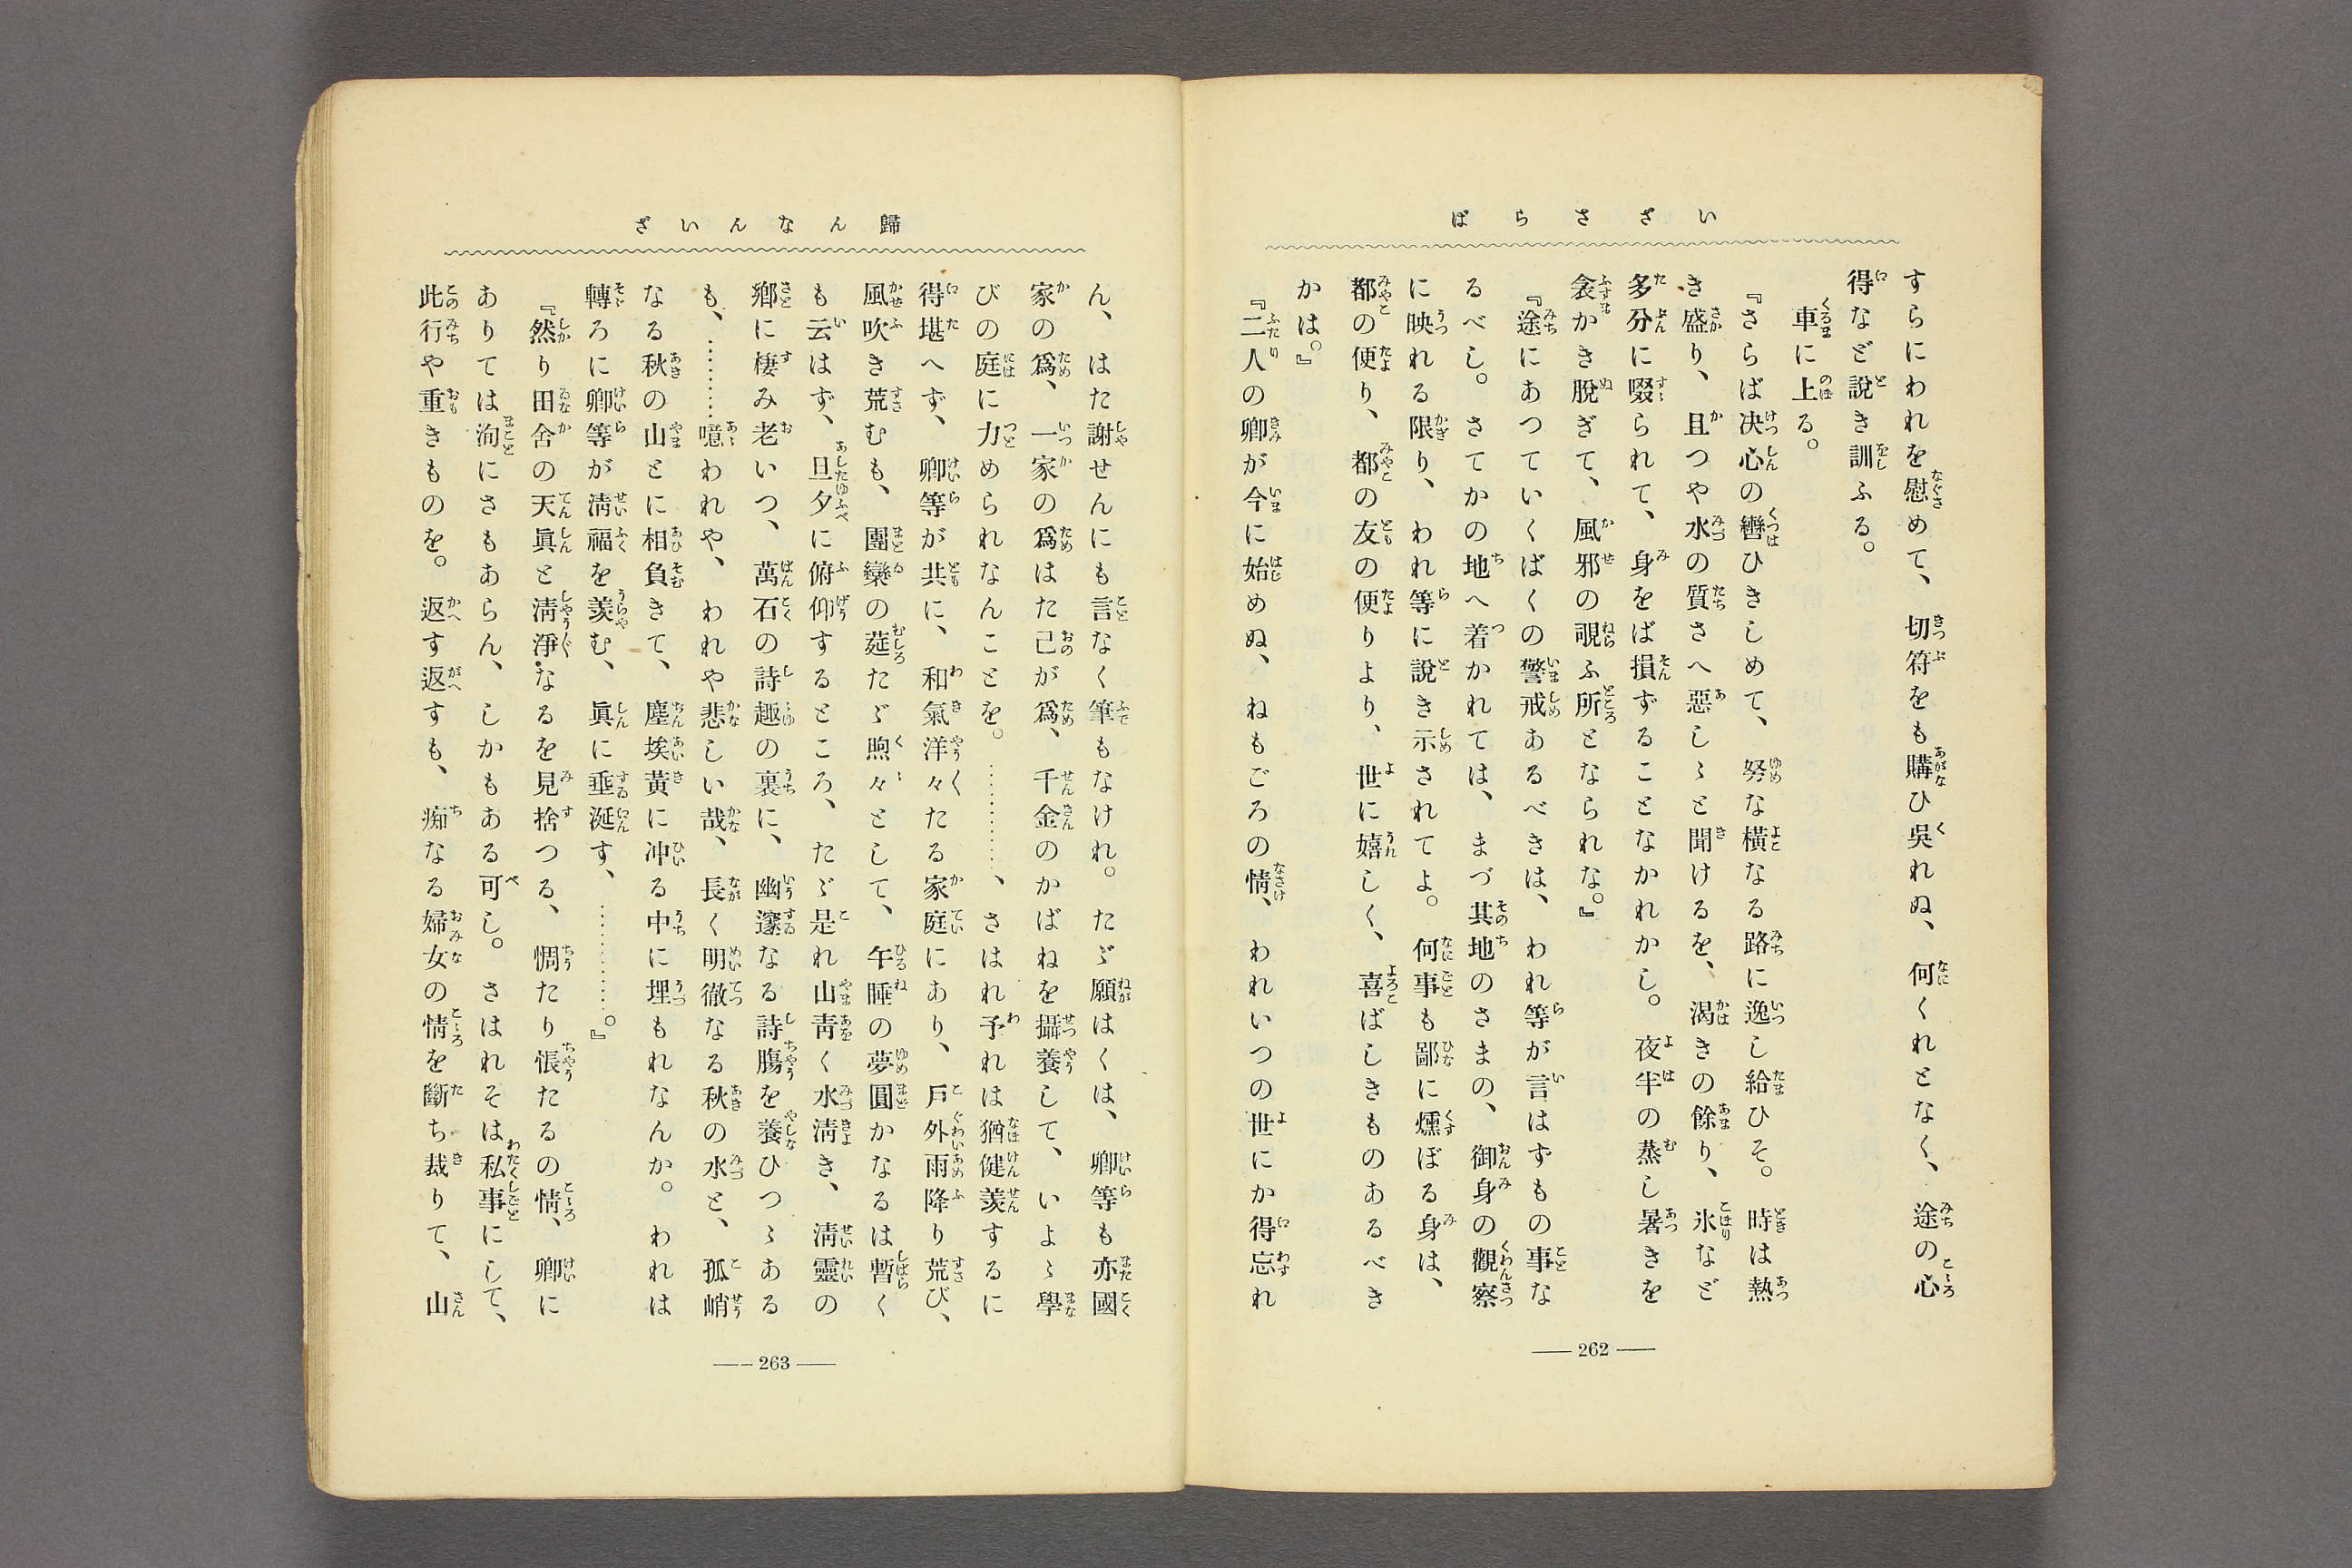 いざさらば
すらにわれを慰めて、切符をも購ひ吳れぬ、何くれとなく、途の心
得など說き訓ふる。
車に上る。
『さらば决心の轡ひきしめて、努な橫なる路に逸し給ひそ。時は熱
き盛り、且つや水の質さへ惡しゝと聞けるを、渴きの餘り、氷など
多分に啜られて、身をば損ずることなかれかし。夜半の蒸し暑きを
衾かき脫ぎて、風邪の覗ふ所となられな。』
『途にあつていくばくの警戒あるべきは、われ等が言はずもの事な
るべし。さてかの地へ着かれては、まづ其地のさまの、御身の觀察
に映れる限り、われ等に說き示されてよ。何事も鄙に燻ぼる身は、
都の便り、都の友の便りより、世に嬉しく、喜ばしきものあるべき
かは。』
『二人の卿が今に始めぬ、ねもごろの情、われいつの世にか得忘れ
262
歸んなんいざ
ん、はた謝せんにも言なく筆もなけれ。たゞ願はくは、卿等も亦國
家の爲、一家の爲はた己が爲、千金のかばねを攝養して、いよゝ學
びの庭に力められなんことを。…………、さはれ予れは猶健羨するに
得堪へず、卿等が共に、和氣洋々たる家庭にあり、戶外雨降り荒び、
風吹き荒むも、團欒の莚たゞ煦々として、午睡の夢圓かなるは暫く
も云はず、旦夕に俯仰するところ、たゞ是れ山靑く水淸き、淸靈の
鄕に棲み老いつ、萬石の詩趣の裏に、幽邃なる詩膓を養ひつゝある
も、…………噫われや、われや悲しい哉、長く明徹なる秋の水と、孤峭
なる秋の山とに相負きて、塵埃黃に冲る中に埋もれなんか。われは
轉ろに卿等が淸福を羨む、眞に垂涎す、…………。』
『然り田舍の天眞と淸淨なるを見捨つる、惆たり悵たるの情、卿に
ありては洵にさもあらん、しかもある可し。さはれそは私事にして、
此行や重きものを。返す返すも、痴なる婦女の情を斷ち裁りて、山
263